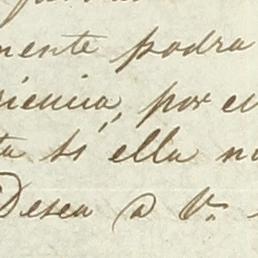 mente podra
riencia, por
ta si ella
Desea a V.